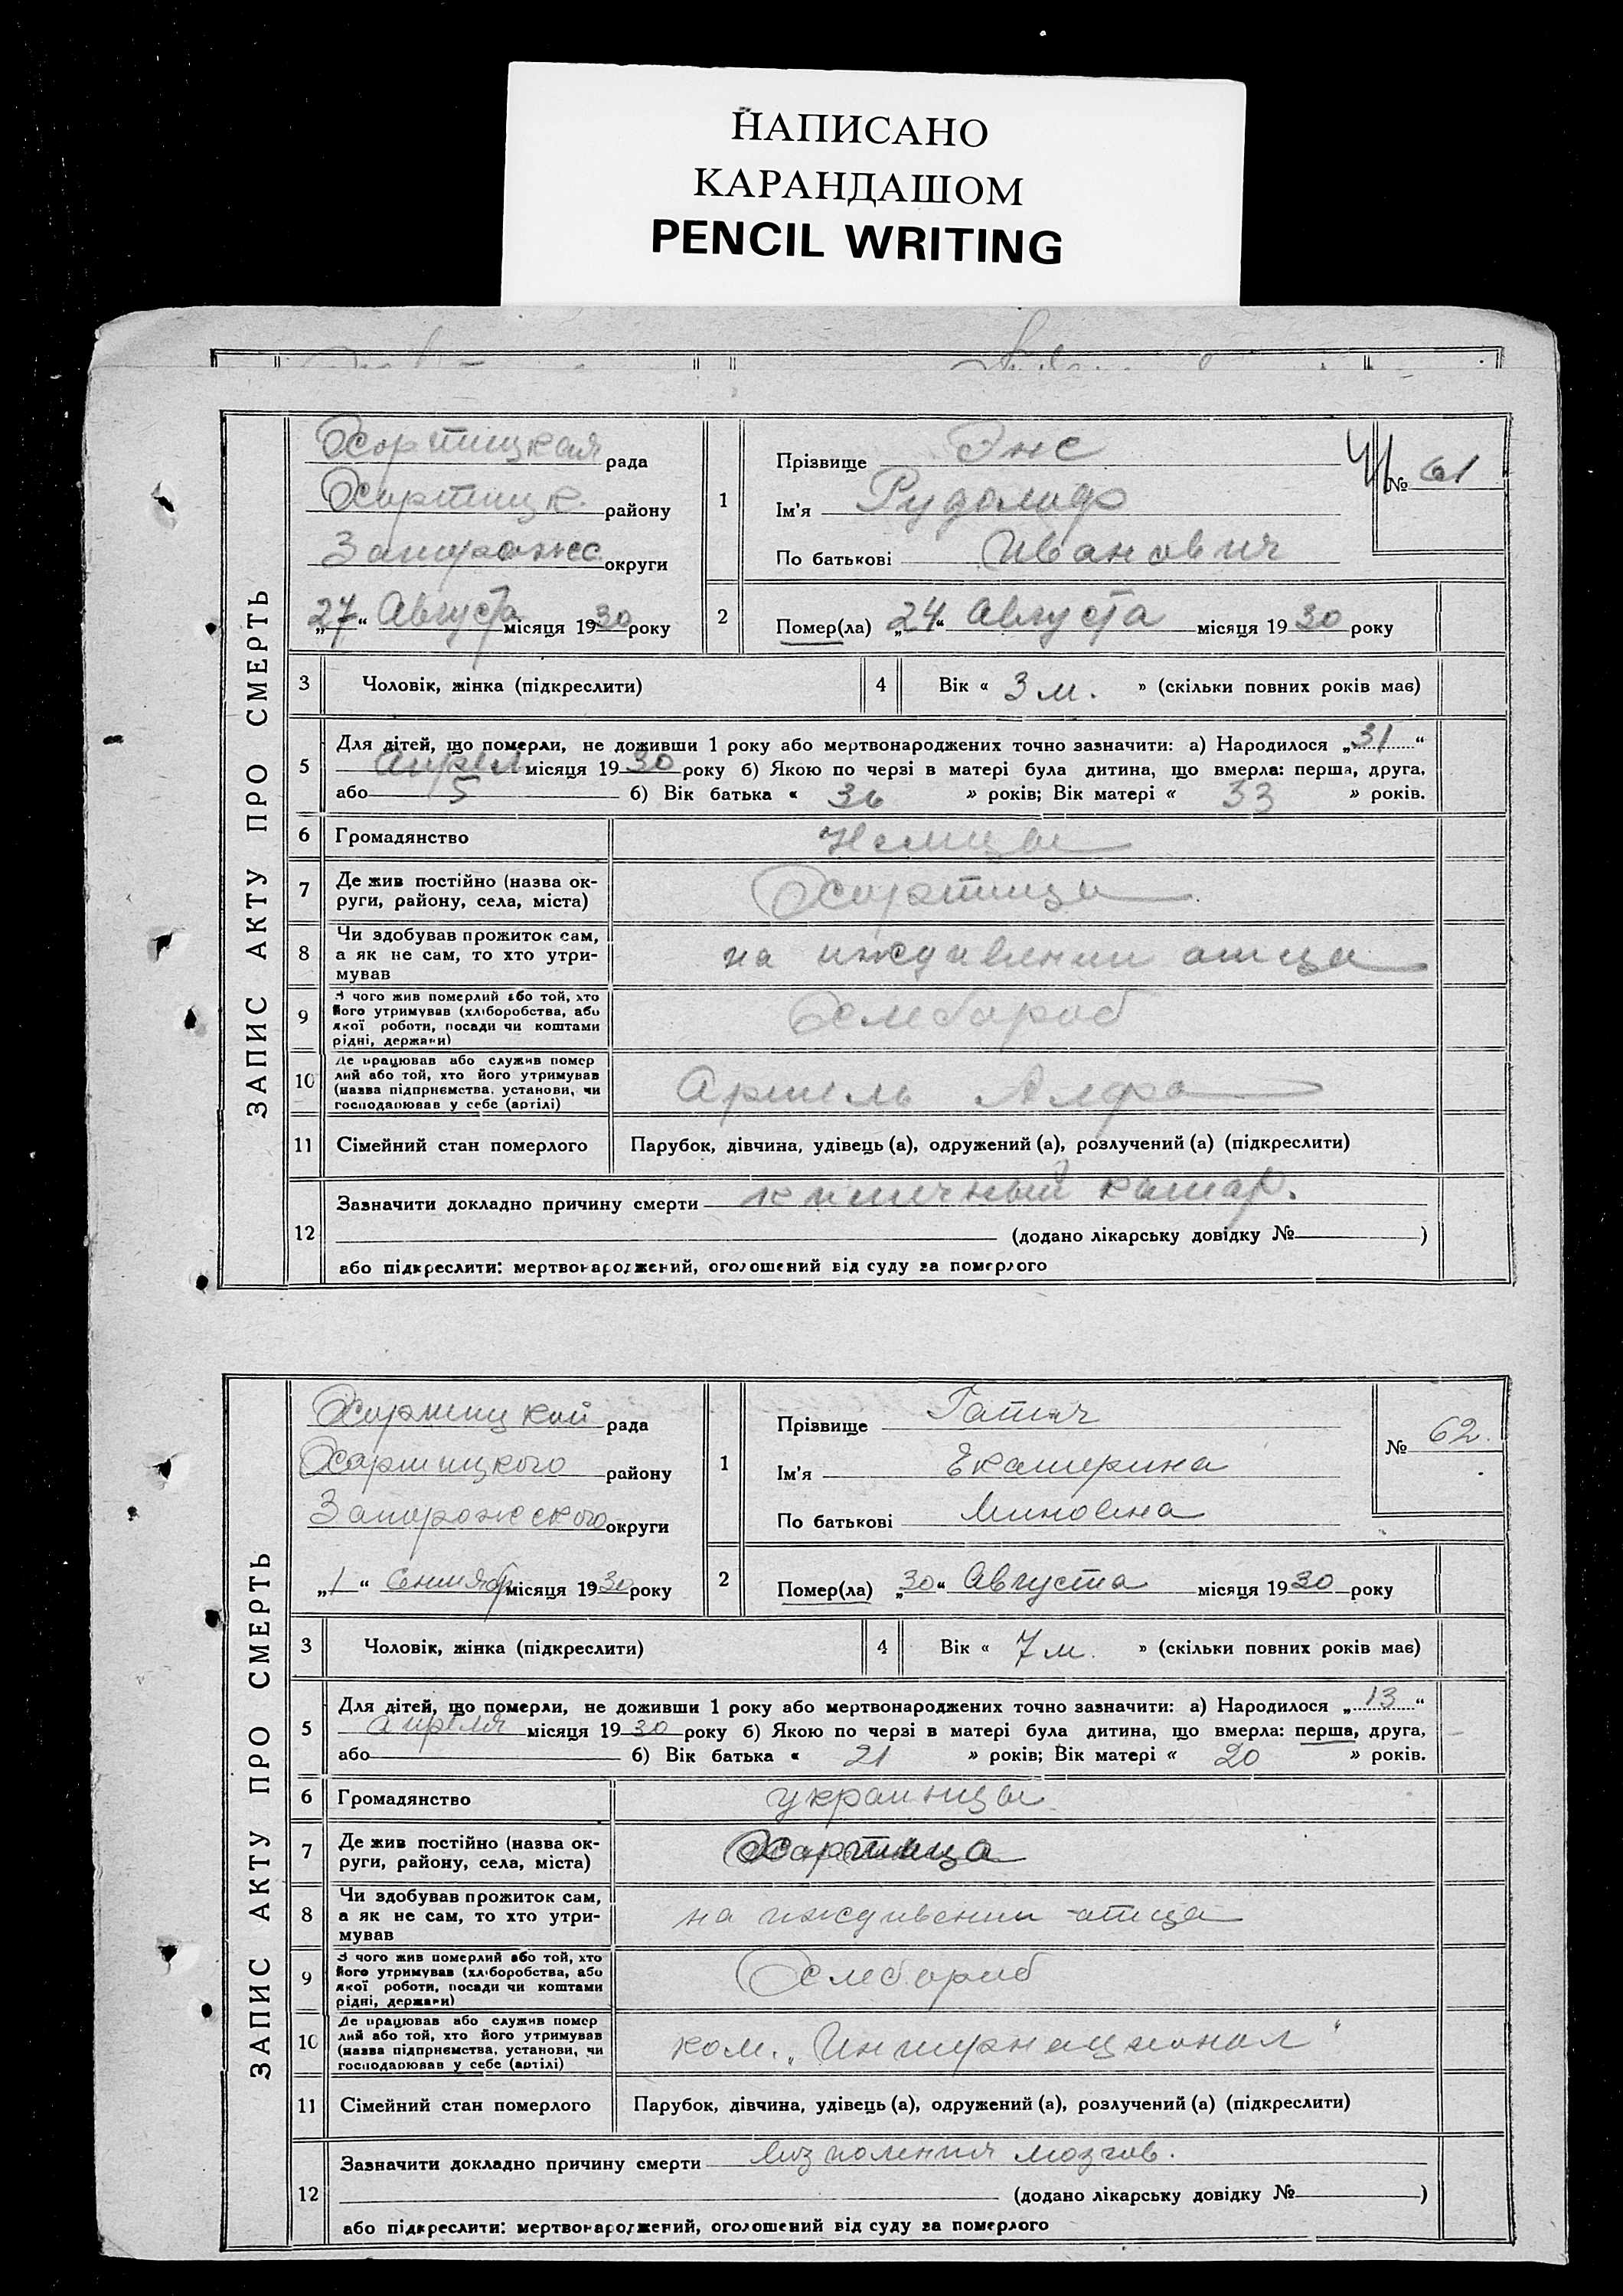 НАПИСАНО
КАРАНДАШОМ
PENCIL WRITING
ЗАПИС АКТУ ПРО СМЕРТЬ
Хортицкая рада
Хортицк. району
Запорожс округи
„27“ Августа місяця 1930 року
1
Прізвище Энс
Ім'я Рудольф
По батькові Иванович
№ 61
2
Помер(ла) „24“ Августа місяця 1930 року
3 Чоловік, жінка (підкреслити)
4 Вік « 3 м. » (скільки повних років має)
5
Для дітей, що померли, не доживши 1 року або мертвонароджених точно зазначити: а) Народилося „31“
Апрел місяця 1930 року б) Якою по черзі в матері була дитина, що вмерла: перша, друга,
або 5 б) Вік батька « 36 » років; Вік матері « 33 » років.
6 Громадянство Немцы
7 Де жив постійно (назва ок-
руги, району, села, міста) Хортица
8 Чи здобував прожиток сам,
а як не сам, то хто утри-
мував на иждивении отца
9 З чого жив померлий або той, хто
його утримував (хліборобства, або
якої роботи, посади чи коштами
рідні, держави) Хлебороб
10 Де працював або служив помер
лий або той, хто його утримував
(назва підприємства, установи, чи
господарював у себе (артілі) Артель Алфа
11 Сімейний стан померлого Парубок, дівчина, удівець (а), одружений (а), розлучений (а) (підкреслити)
12
Зазначити докладно причину смерти кишечный катар.
(додано лікарську довідку № )
або підкреслити: мертвонароджений, оголошений від суду за померлого
ЗАПИС АКТУ ПРО СМЕРТЬ
Хортицкой рада
Хортицкого району
Запорожского округи
„1“ Сентяб місяця 1930 року
1
Прізвище
Ім'я Екатерина
По батькові
№ 62.
2
Помер(ла) „30“ Августа місяця 1930 року
3 Чоловік, жінка (підкреслити)
4 Вік « 7 м. » (скільки повних років має)
5
Для дітей, що померли, не доживши 1 року або мертвонароджених точно зазначити: а) Народилося „13“
апреля місяця 1930 року б) Якою по черзі в матері була дитина, що вмерла: перша, друга,
або б) Вік батька « 21 » років; Вік матері « 20 » років.
6 Громадянство украинцы
7 Де жив постійно (назва ок-
руги, району, села, міста) Хортица
8 Чи здобував прожиток сам,
а як не сам, то хто утри-
мував на иждивении отца
9 З чого жив померлий або той, хто
його утримував (хліборобства, або
якої роботи, посади чи коштами
рідні, держави) Хлебороб
10 Де працював або служив помер
лий або той, хто його утримував
(назва підприємства, установи, чи
господарював у себе (артілі) ком. „Интернационал“
11 Сімейний стан померлого Парубок, дівчина, удівець (а), одружений (а), розлучений (а) (підкреслити)
12
Зазначити докладно причину смерти мозгов.
(додано лікарську довідку № )
або підкреслити: мертвонароджений, оголошений від суду за померлого